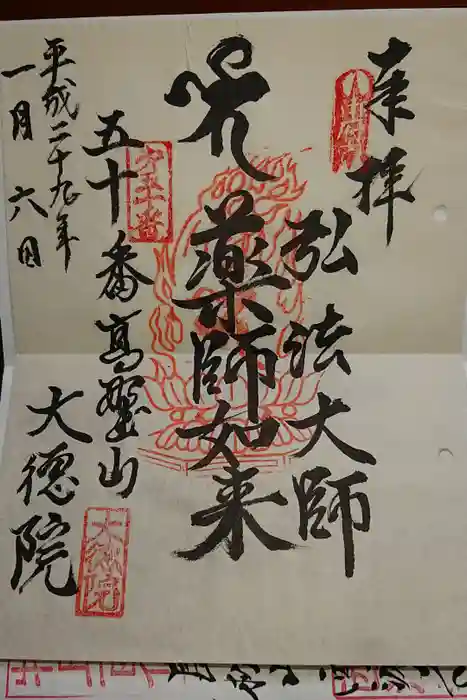 奉拝
弘法大師
薬師如来
五十番高野山
大徳院
平成二十九年
一月六日
大徳院